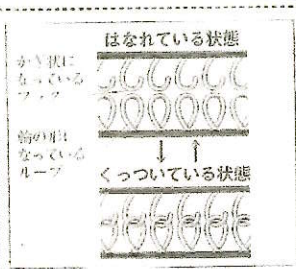 はなれている状態
かぎ状に
なっている
フック
輪の形に
なっている
ループ
くっついている状態